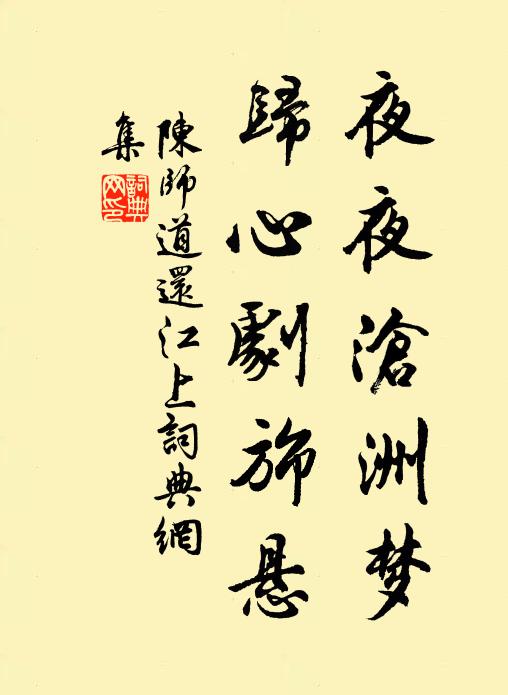 夜夜滄洲梦
歸心劇斾悬
陳師道還江上詞典網
集
詞典网印